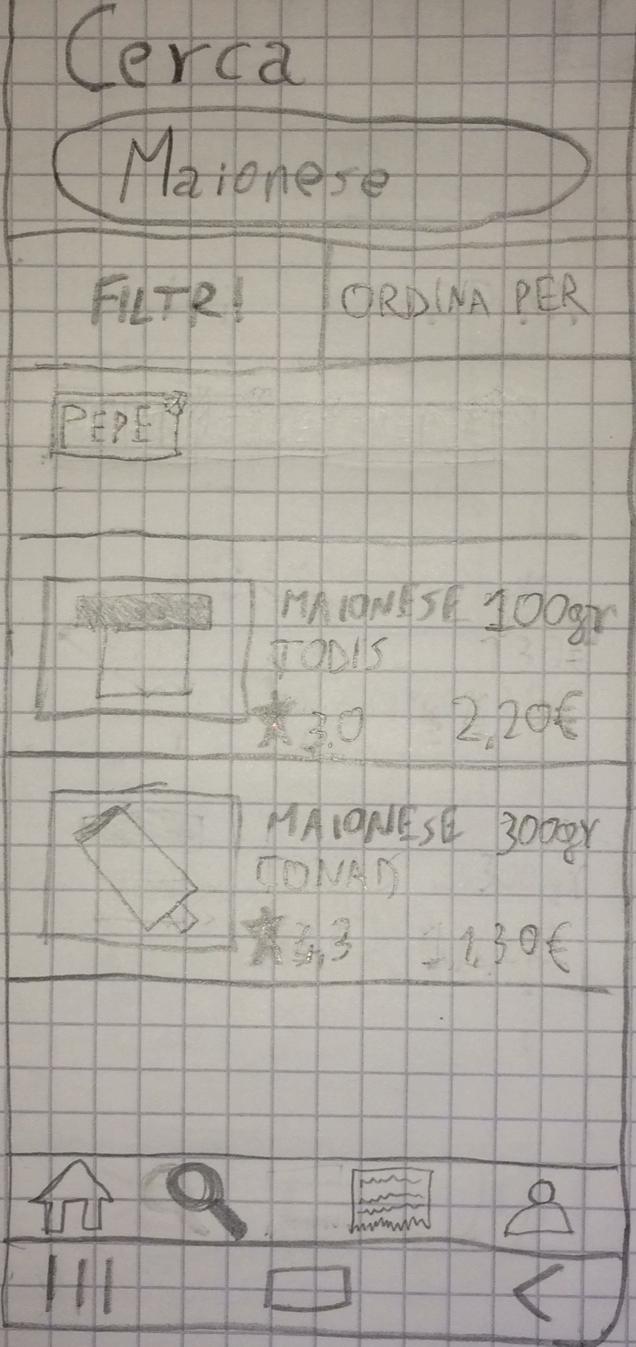 Cerca
Maionese
FILTRI ORDINA PER
PEPE
MAIONESE 100gr
TODIS
3.0 2,20€
MAIONESE 300gr
CONAD
3,3 1,30€